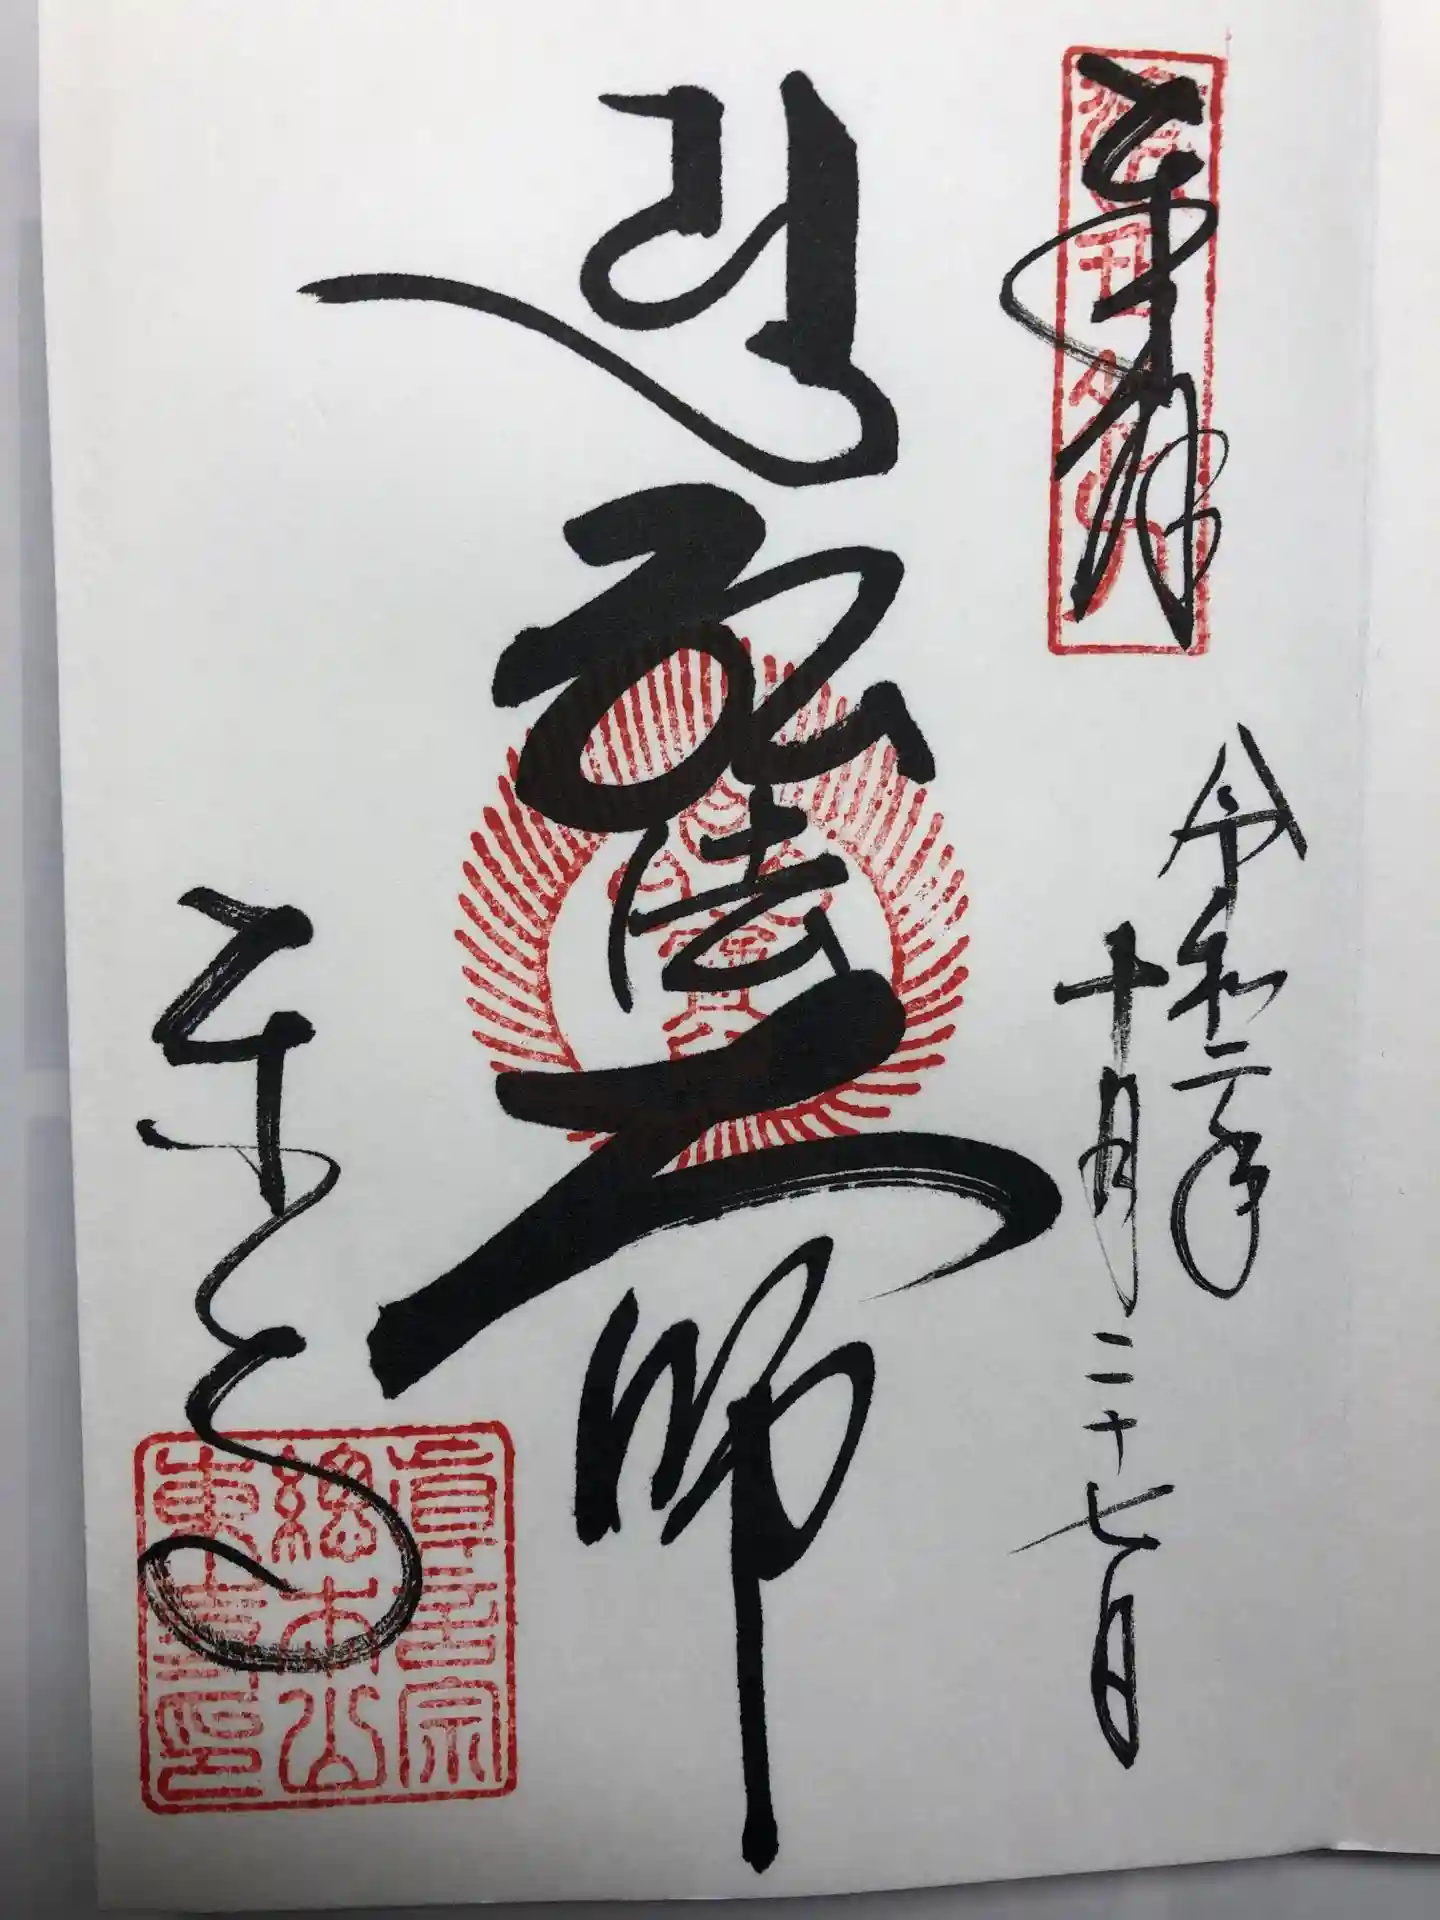 奉拝
令和二年
十月二十七日
弘法大師
東寺
真言宗
總本山
東寺印